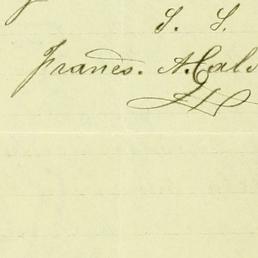 S. S.
Francos. A. Cal